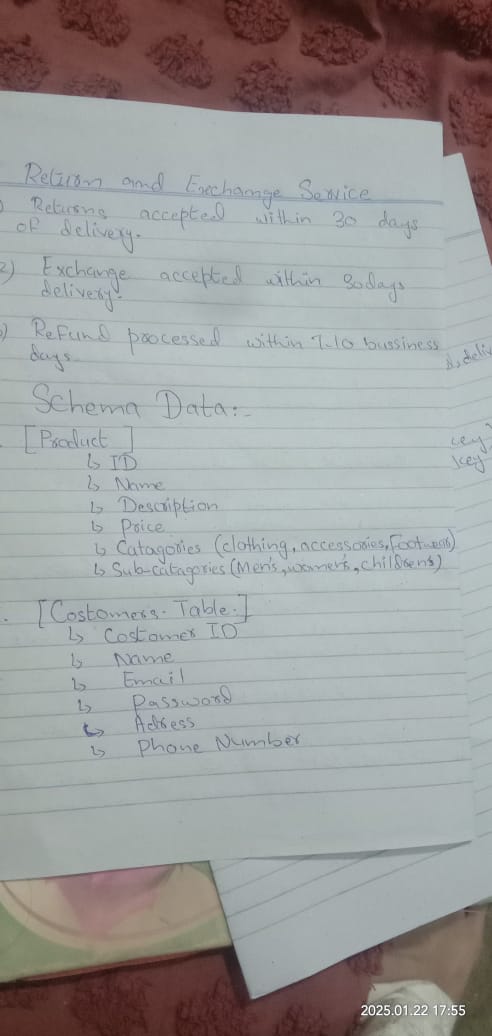 Return and Exechange Service
Returns accepted within 30 days
of delivery.
2) Exchange accepted within 30days
delivery.
) Refund processed within 7-10 bussiness
days
Schema Data:-
[Product]
↳ ID
↳ Name
↳ Description
↳ Price
↳ Catagories (clothing, accessories, Footwears)
↳ Sub-catagories (Men's, women's, children's)
[Costomers. Table.]
↳ Costomer ID
↳ Name
↳ Email
↳ Password
↳ Adress
↳ Phone Number
key
2025.01.22 17:55